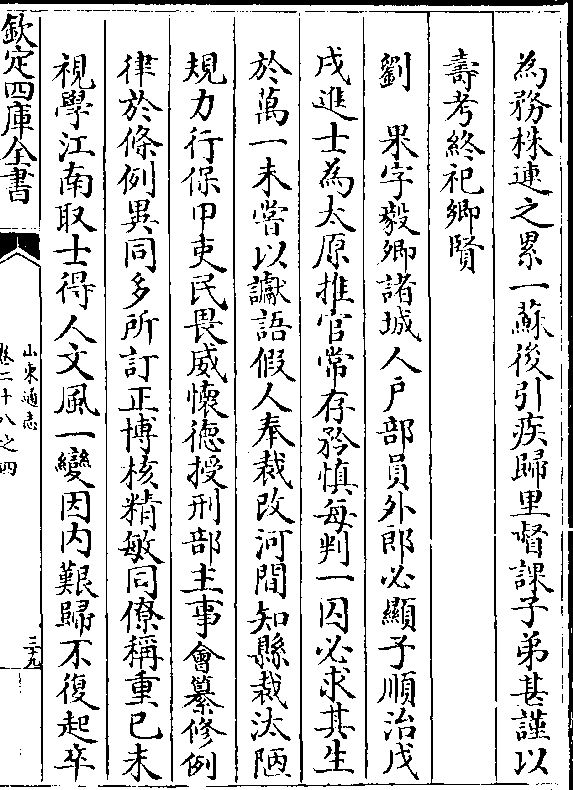 為務株連之累一蘇後引疾歸里督課子弟甚謹以
壽考終祀鄉賢
劉　果字毅卿諸城人戸部員外郎必顯子順治戊
戌進士為太原推官常存矜慎每判一囚必求其生
於萬一未嘗以讞語假人奉裁改河間知縣裁汰陋
規力行保甲吏民畏威懷德授刑部主事會纂修例
律於條例異同多所訂正博核精敏同僚稱重已未
視學江南取士得人文風一變因内艱歸不復起卒
欽定四庫全書
山東通志
卷二十八之四
三九